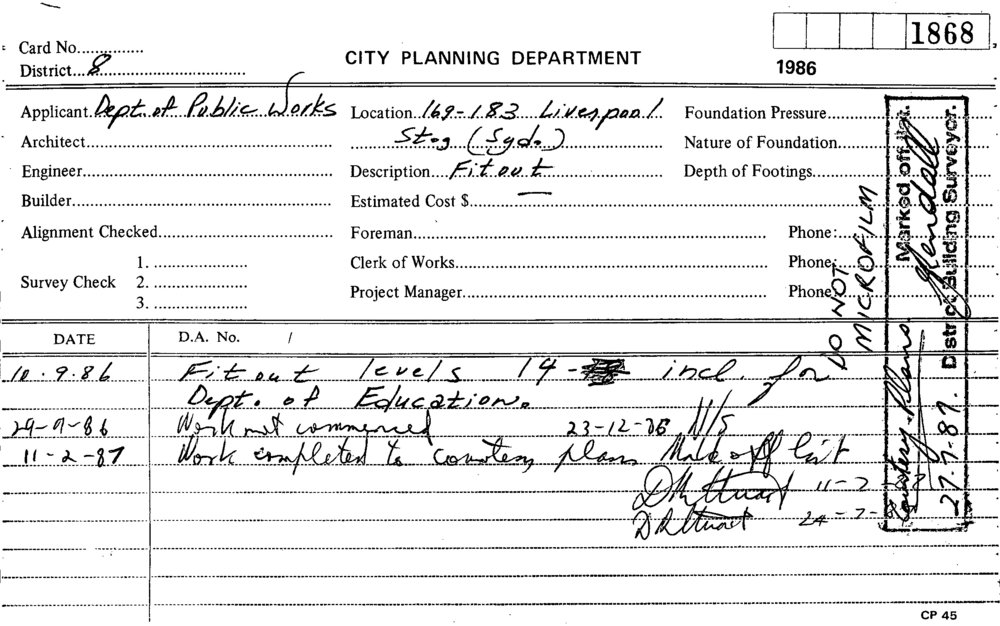 1868
Card No.
District 8
CITY PLANNING DEPARTMENT
1986
Applicant Dept. of Public Works
Location 169-183 Liverpool
Foundation Pressure
Architect
St.
(Syd.)
Nature of Foundation
Engineer
Description Fitout
Depth of Footings
Builder
Estimated Cost $ —
Alignment Checked
Foreman
Phone:
Survey Check
1.
2.
3.
Clerk of Works
Phone:
Project Manager
Phone:
DO NOT
MICROFILM
Marked off list.
Kendall
District Building Surveyor.
Courtesy Plans.
27.7.87.
DATE
D.A. No. /
10.9.86 Fitout levels 14 - incl. for
Dept. of Education.
29-9-86 Work not commenced 23-12-86 N/S
11-2-87 Work completed to courtesy plans Mark off list
D R Stuart 11-2-87
D R Stuart 24-7-8
CP 45